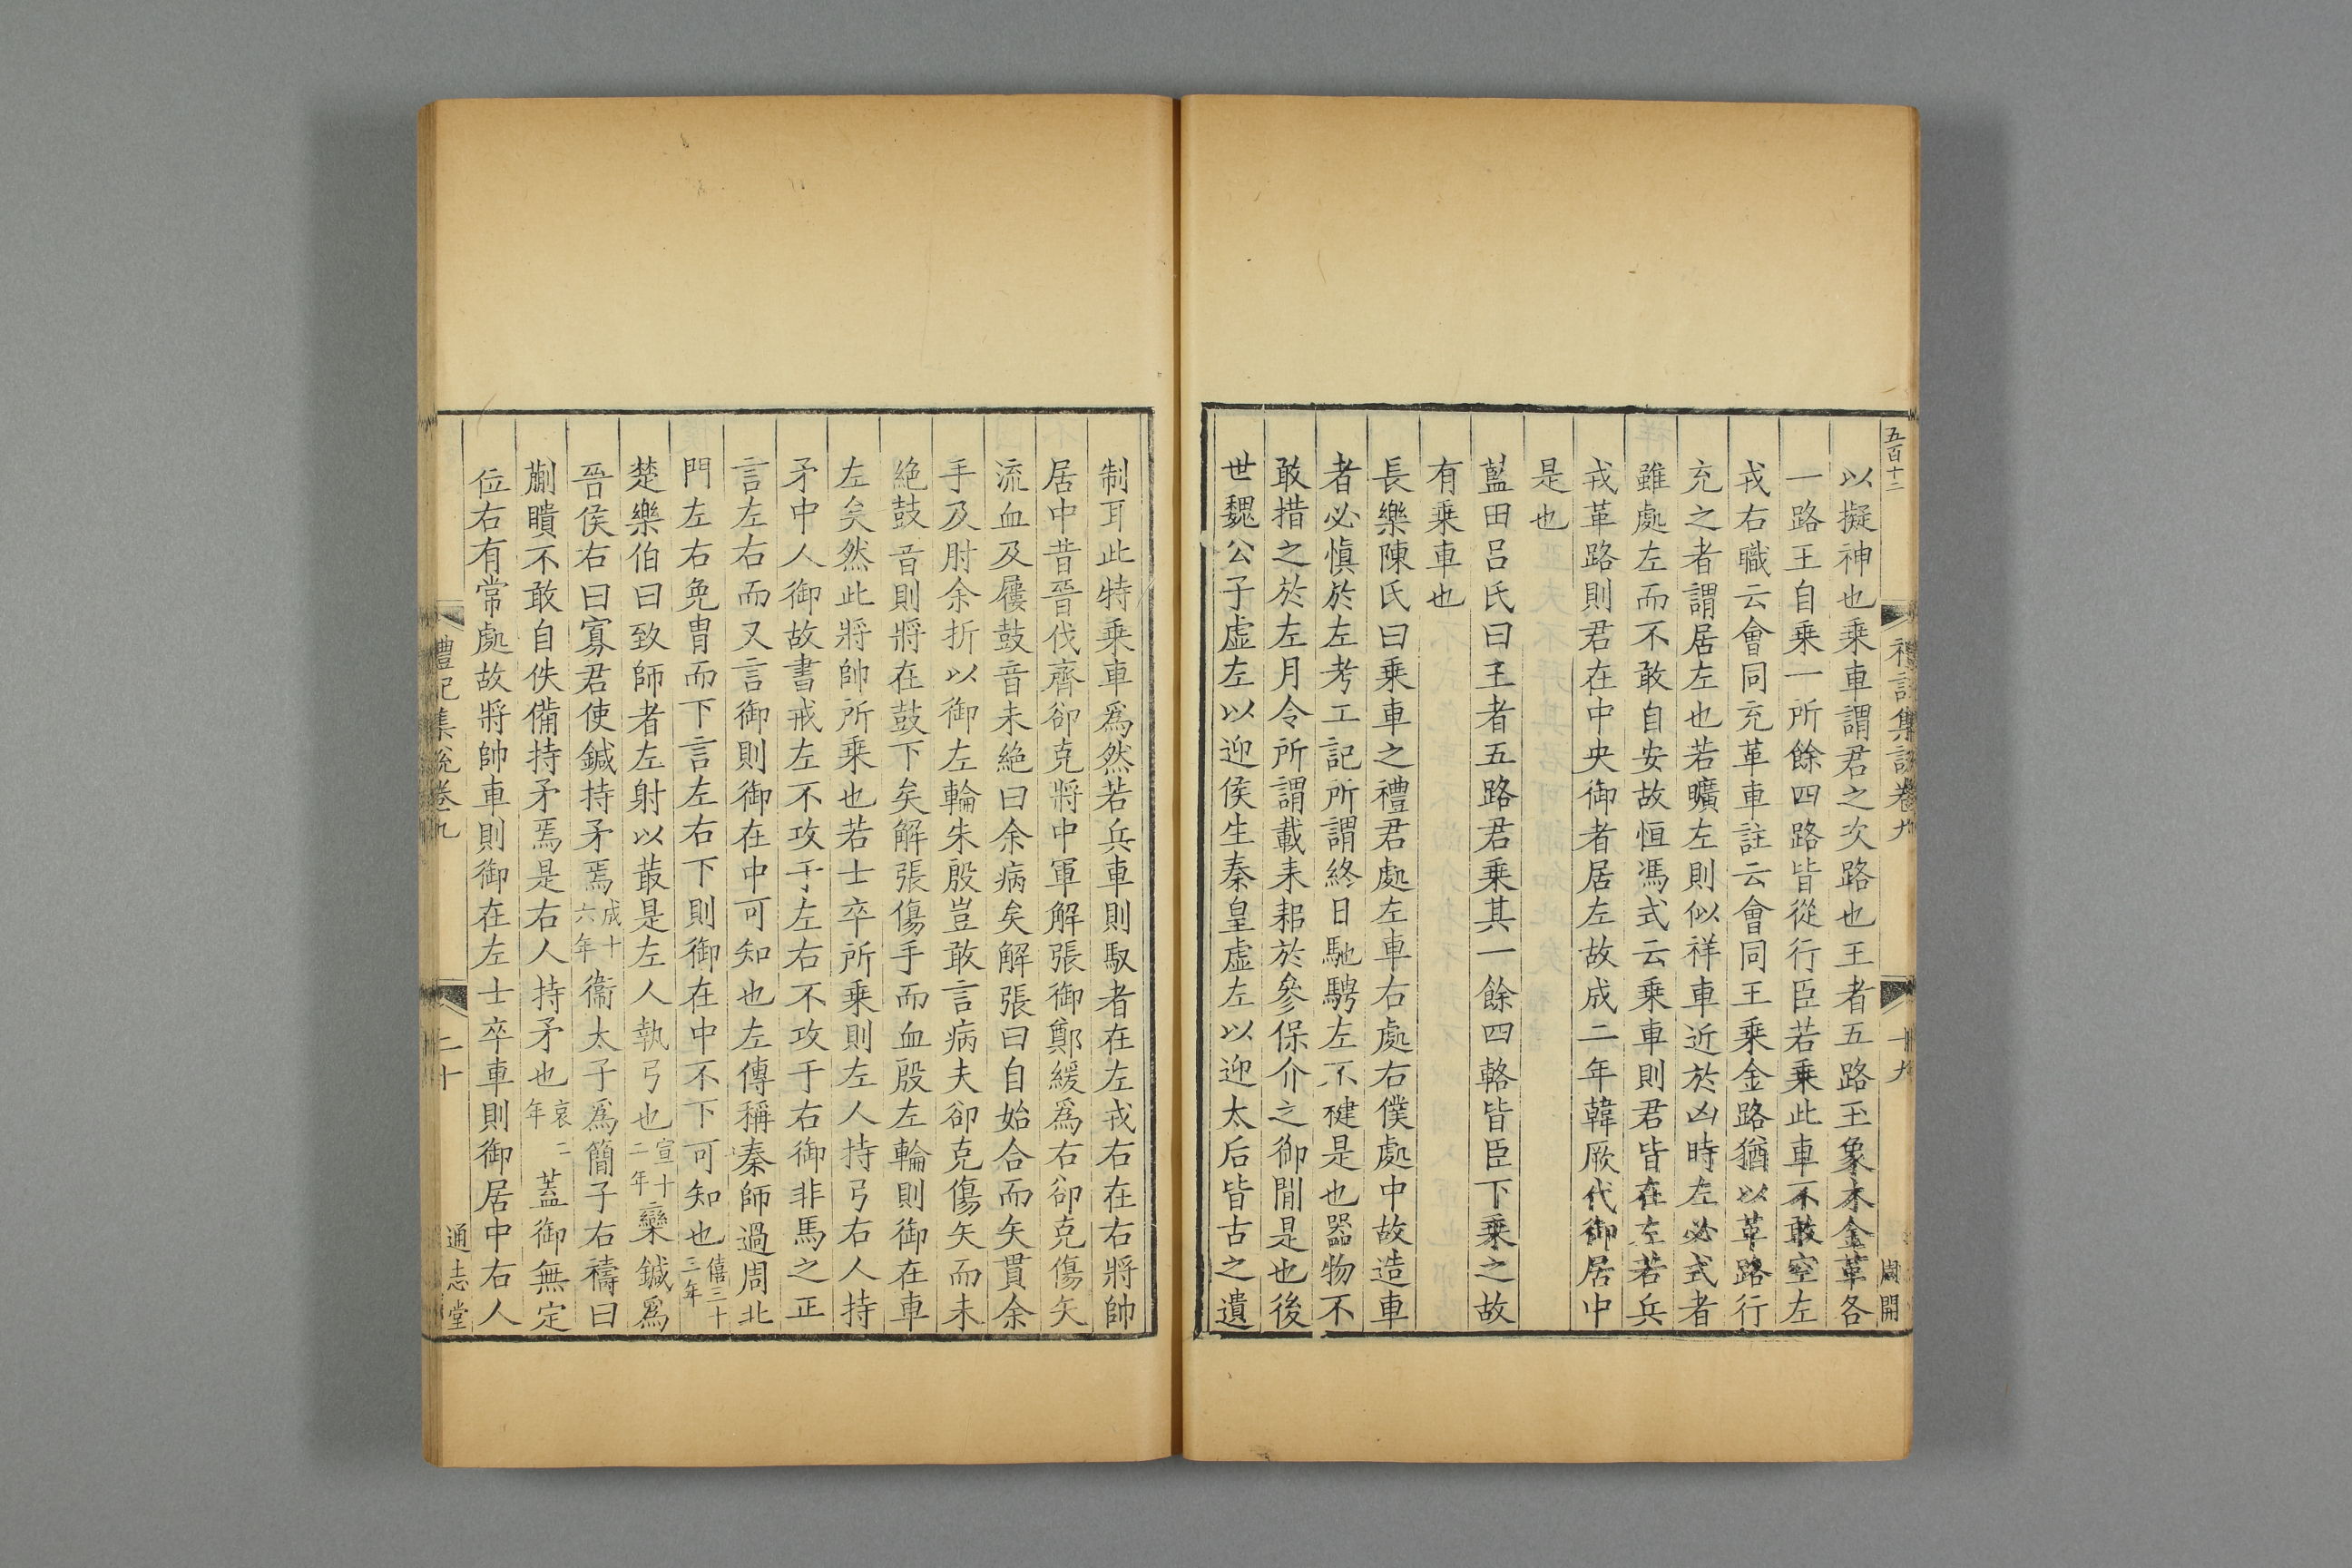 五百十二
禮記集說卷九
十九
以擬神也乘車謂君之次路也王者五路玉象木金革各
一路王自乘一所餘四路皆從行臣若乘此車不敢空左
戎右職云會同充革車註云會同王乘金路猶以革路行
充之者謂居左也若曠左則似祥車近於凶時左必式者
雖處左而不敢自安故恒馮式云乘車則君皆在左若兵
戎革路則君在中央御者居左故成二年韓厥代御居中
是也
藍田呂氏曰王者五路君乘其一餘四輅皆臣下乘之故
有乘車也
長樂陳氏曰乘車之禮君處左車右處右僕處中故造車
者必慎於左考工記所謂終日馳騁左不楗是也器物不
敢措之於左月令所謂載耒耜於參保介之御閒是也後
世魏公子虛左以迎侯生秦皇虛左以迎太后皆古之遺
制耳此特乘車爲然若兵車則馭者在左戎右在右將帥
居中昔晉伐齊郤克將中軍解張御鄭緩爲右郤克傷矢
流血及屨鼓音未絶曰余病矣解張曰自始合而矢貫余
手及肘余折以御左輪朱殷豈敢言病夫郤克傷矢而未
絶鼓音則將在鼓下矣解張傷手而血殷左輪則御在車
左矣然此將帥所乘也若士卒所乘則左人持弓右人持
矛中人御故書戒左不攻于左右不攻于右御非馬之正
言左右而又言御則御在中可知也左傳稱秦師過周北
門左右免冑而下言左右下則御在中不下可知也僖三十三年
楚樂伯曰致師者左射以菆是左人執弓也宣十二年欒鍼爲
晉侯右曰寡君使鍼持矛焉成十六年衞太子爲簡子右禱曰
蒯聵不敢自佚備持矛焉是右人持矛也哀二年蓋御無定
位右有常處故將帥車則御在左士卒車則御居中右人
禮記集說卷九
二十
通志堂